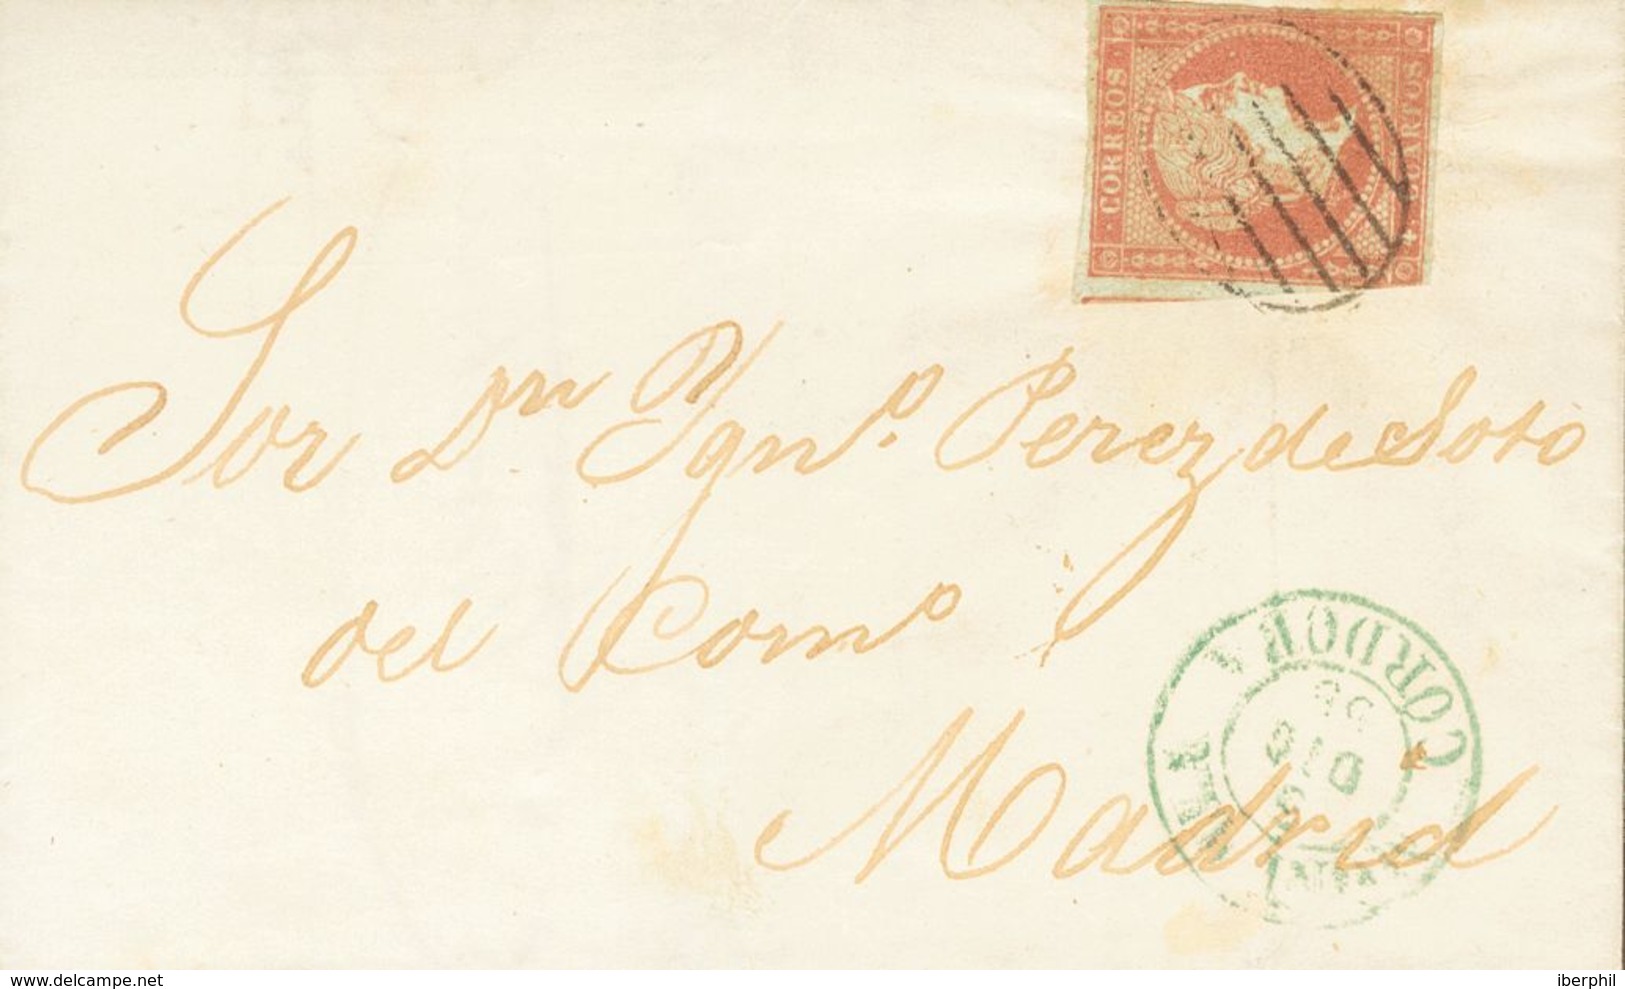 CORREOS
4 CUARTOS
Sor Dn Ygno. Perez de Soto
del Como
Madrid
CORDOBA
DIC
www.delcampe.net
iberphil